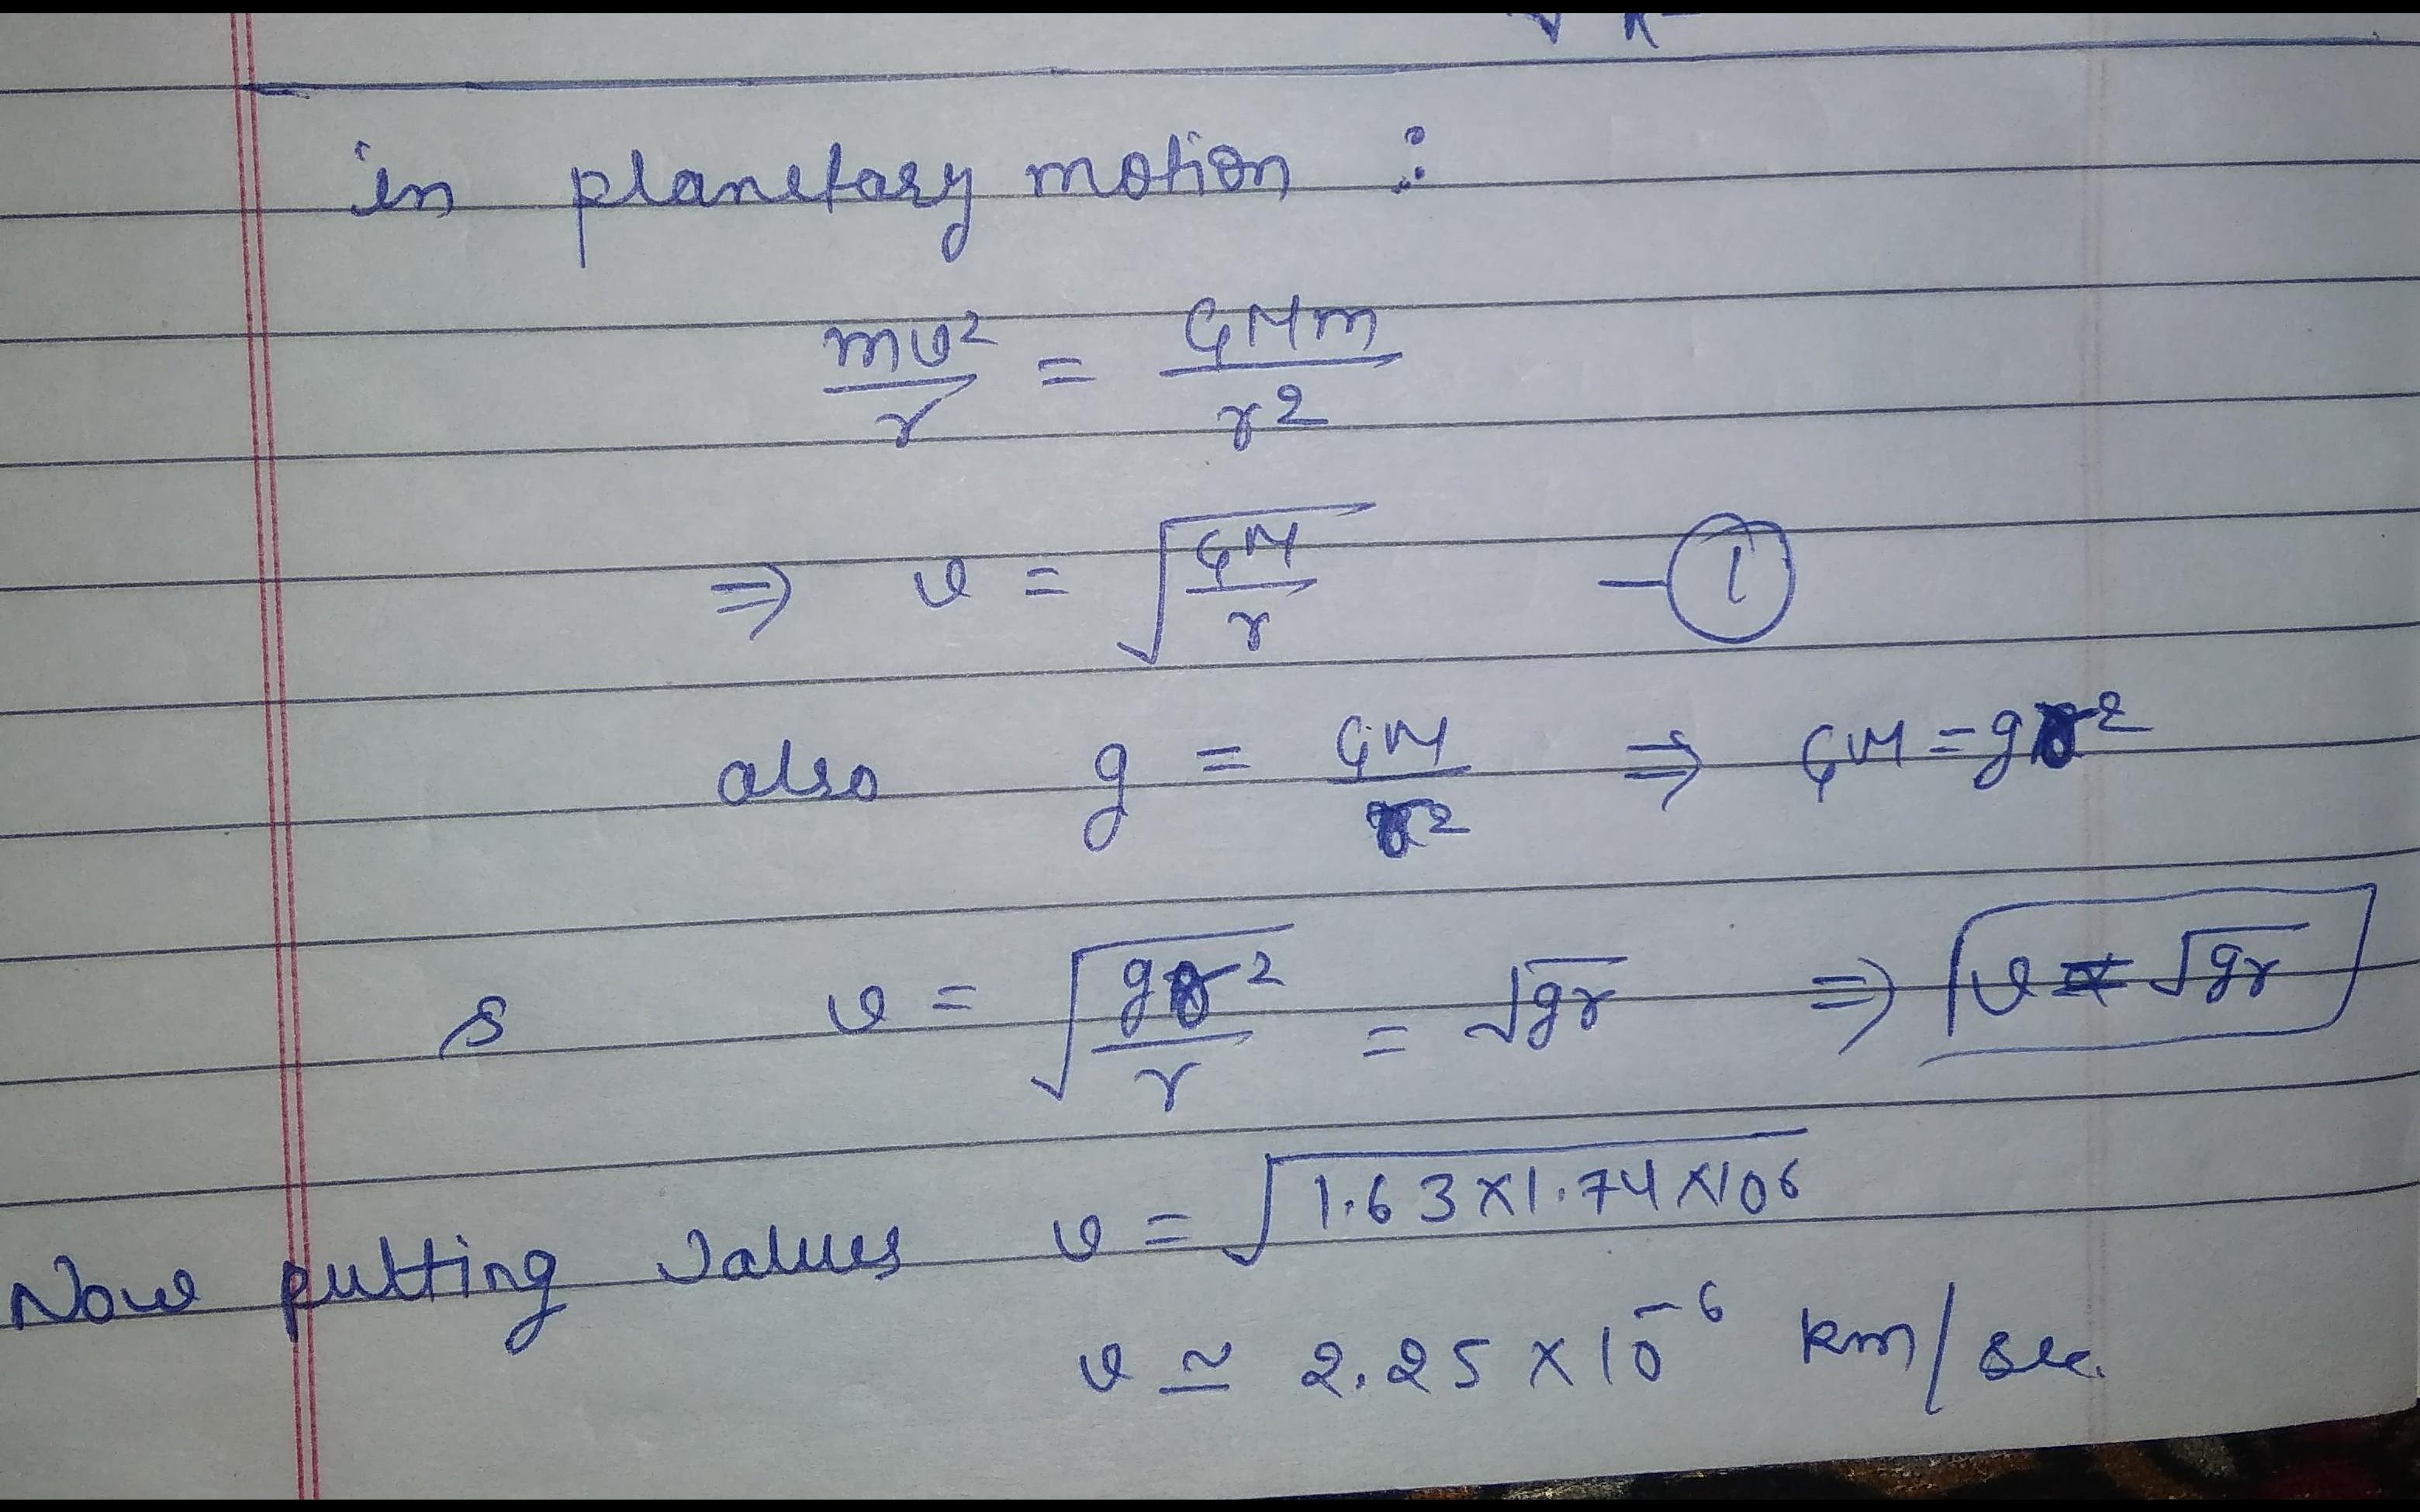 in planetary motion :
mv²/r = GMm/r²
⇒ v = √(GM/r) — ①
also g = GM/r² ⇒ GM = gr²
v = √(gr²/r) = √gr ⇒ v = √gr
Now putting values v = √1.63×1.74×106
v ≃ 2.25 × 10⁻⁶ km/sec.